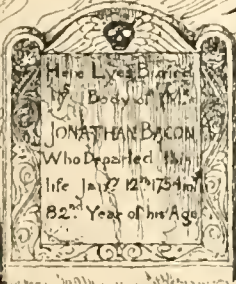 Here Lyes Buried
yᵉ Body of Mʳ
JONATHAN BACON
Who Departed this
life Janʳʸ 12ᵗʰ 1754 in yᵉ
82ⁿᵈ Year of his Age